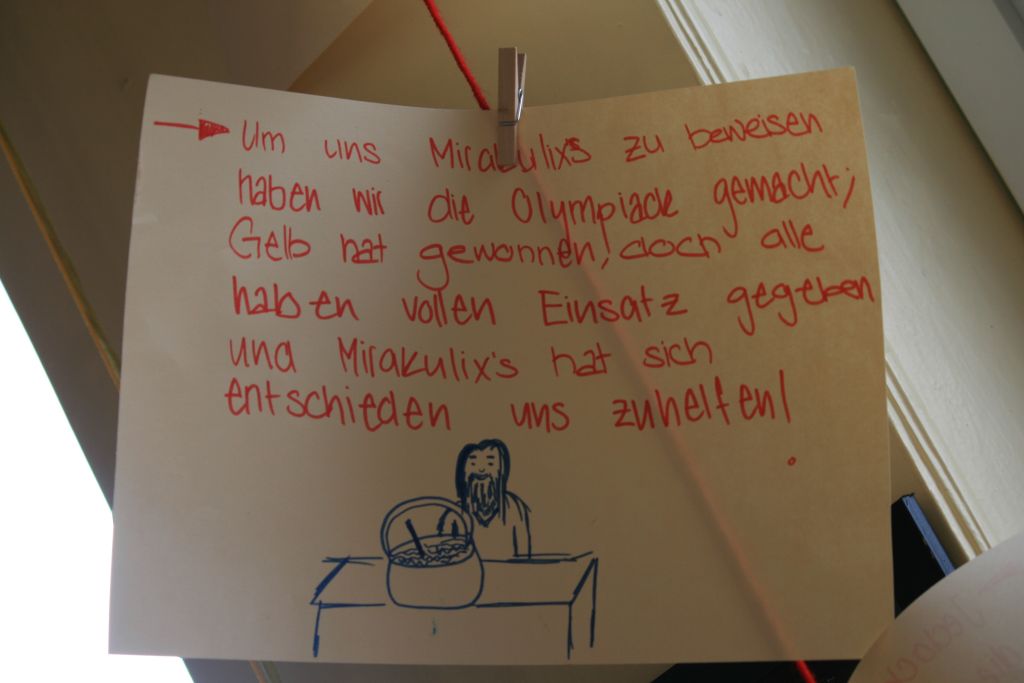 Um uns Mirakulix's zu beweisen
haben wir die Olympiade gemacht;
Gelb hat gewonnen! doch alle
haben vollen Einsatz gegeben
und Mirakulix's hat sich
entschieden uns zuhelfen!